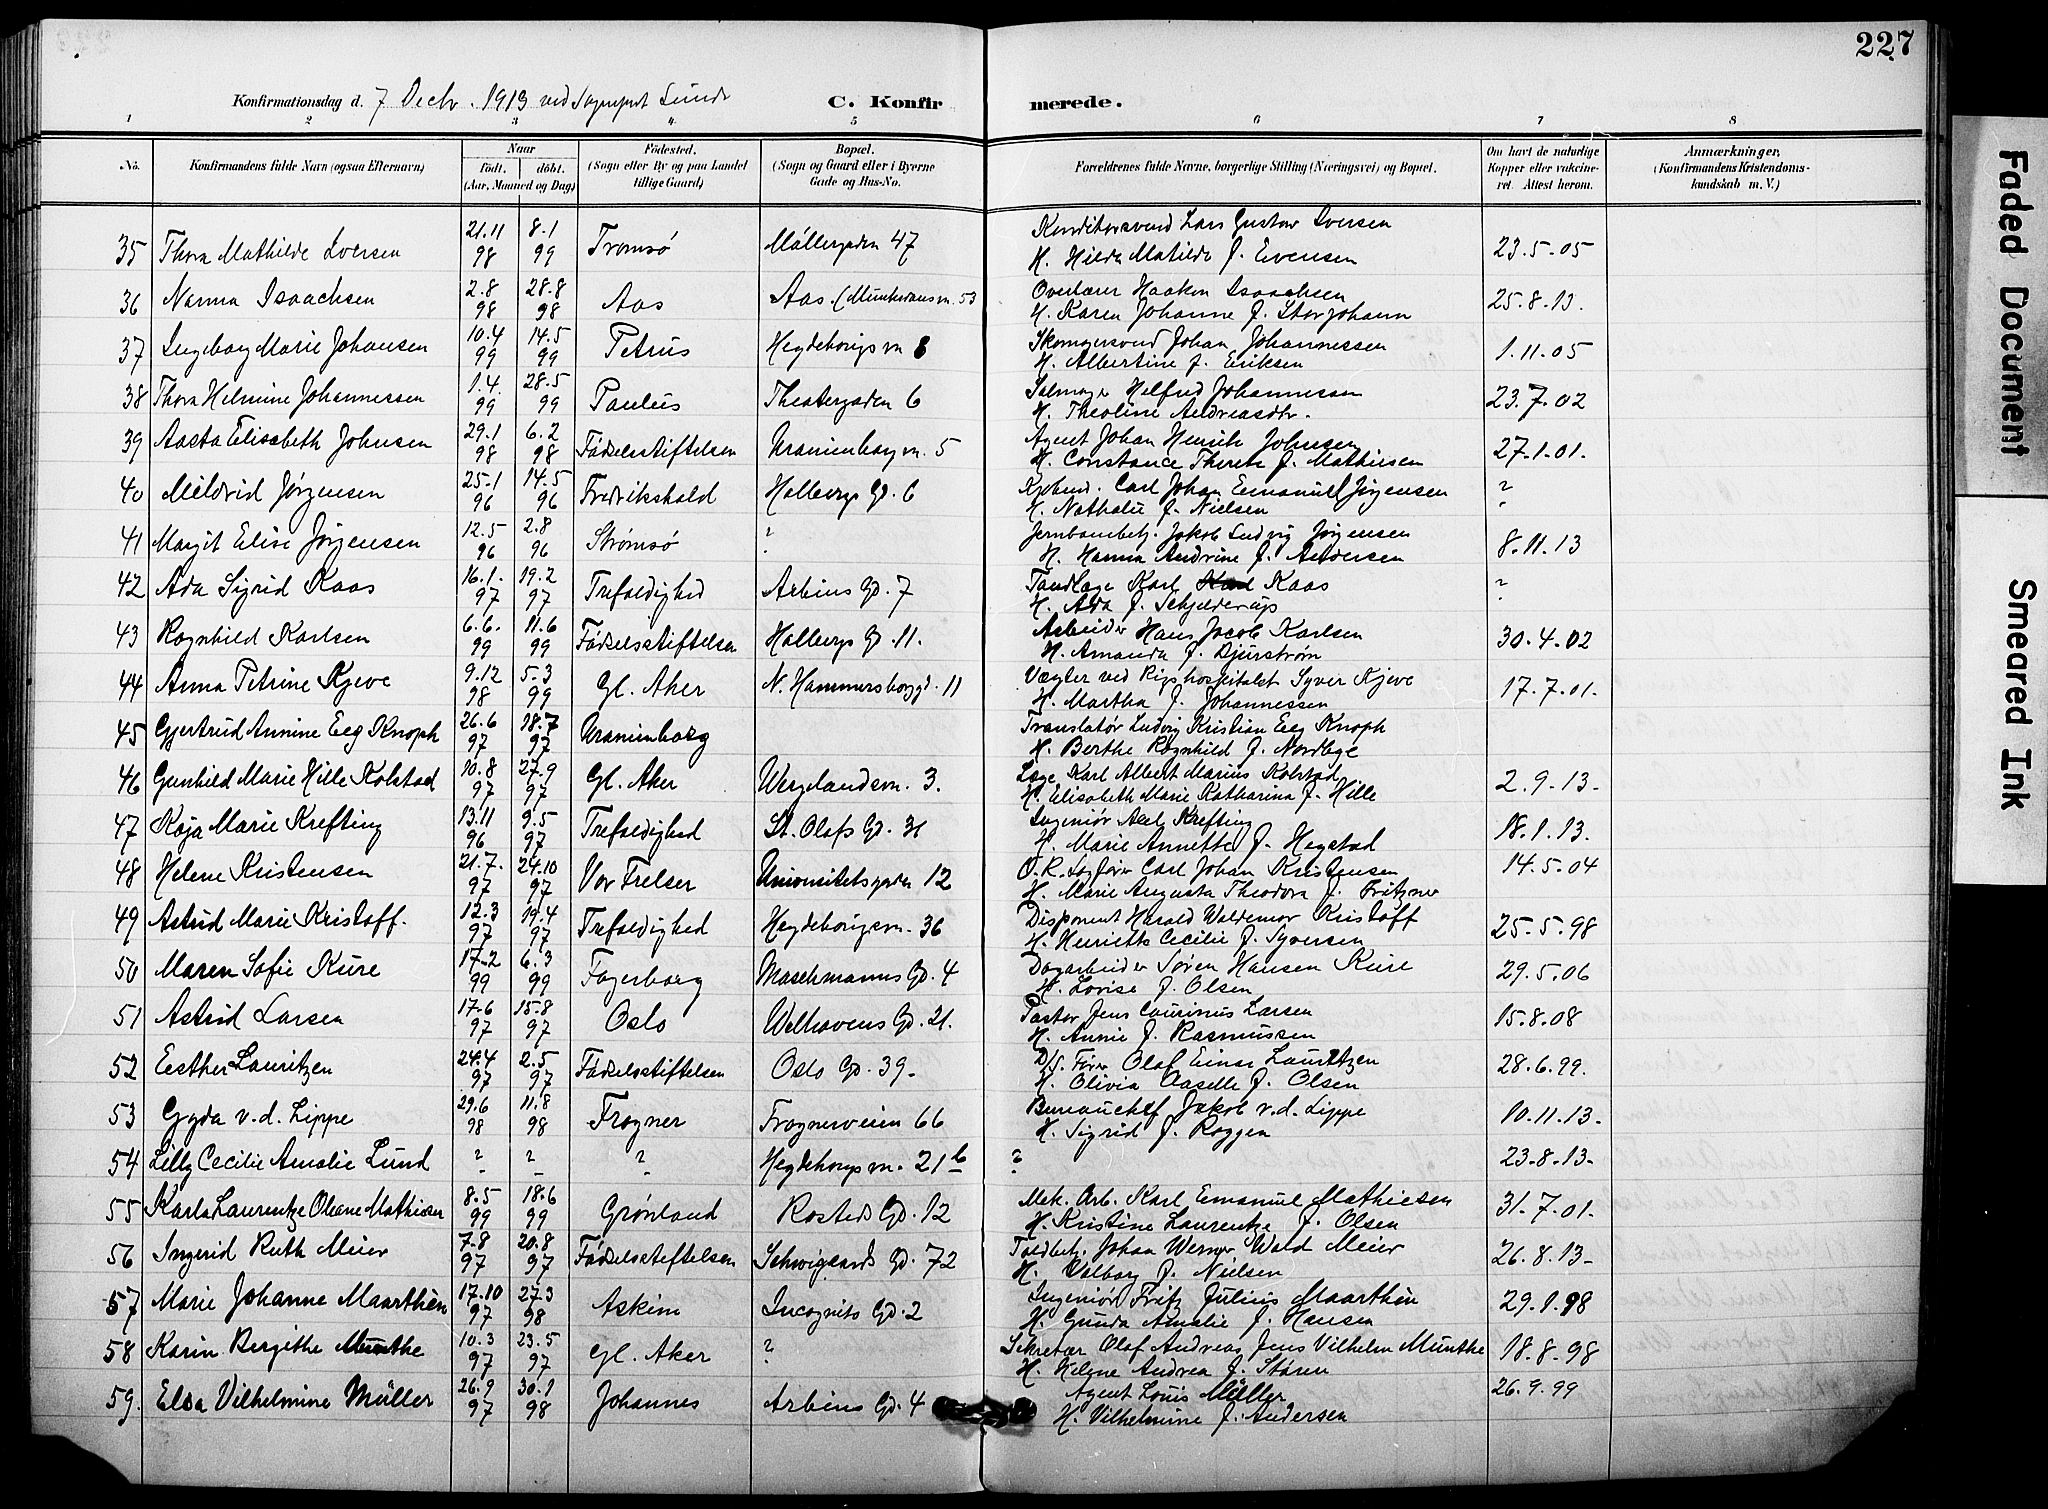 227
Konfirmationsdag d. 7 Decbr. 1913 ved Sogneprest Lunde C. Konfirmerede.
1 2 3 4 5 6 7 8
No. Konfirmandens fulde Navn (ogsaa Efternavn) Naar født. døbt. (Aar, Maaned og Dag) Fødested. (Sogn eller By og paa Landet tillige Gaard) Bopæl. (Sogn og Gaard eller i Byerne Gade og Hus-No. Forældrenes fulde Navne, borgerlige Stilling (Næringsvei) og Bopæl. Om havt de naturlige Kopper eller vakcineret. Attest herom. Anmærkninger, (Konfirmandens Kristendomskundskab m. V.)
35 Thora Mathilde Iversen 21.11 98 8.1 99 Tromsø Møllergaden 47 Konditorsvend Lars Gustav Iversen H. Hilda Matilde f. Evensen 23.5.05
36 Nanna Isaachsen 2.8 98 28.8 98 Aas Aas (Munkedamsvn. 53 Overlærer Haakon Isaachsen H. Karen Johanne f. Storjohann 25.8.13.
37 Ingeborg Marie Johansen 10.4 99 14.5 99 Petrus Hegdehougsvn 8 Skomgersvend Johan Johannessen H. Albertine f. Eriksen 1.11.05
38 Thora Helmine Johannessen 1.4. 99 28.5 99 Paulus Theatergaden 6 Salmager Helfred Johannessen H. Theoline Andreasdtr. 23.7.02
39 Aasta Elisabeth Johnsen 29.1 98 6.2 98 Fødselsstiftelsen Uranienborgvn. 5 Agent Johan Henrik Johnsen H. Constance Therese f. Mathiesen 27.1.01.
40 Mildrid Jørgensen 25.1 96 14.5 96 Fredrikshald Holbergs Gd. 6 Kjøbmd. Carl Johan Emanuel Jørgensen H. Nathalie f. Nielsen ?
41 Margit Elise Jørgensen 12.5 96 2.8 96 Strømsø ? Jernbanebetj. Jakob Ludvig Jørgensen H. Hanna Andrine f. Andersen 8.11.13
42 Ada Sigrid Kaas 16.1. 97 19.2 97 Trefoldighed Arbins Gd. 7 Tandlæge Karl Kaas H. Ada f. Schjelderup ?
43 Ragnhild Karlsen 6.6. 99 11.6 99 Fødselsstiftelsen Holbergs Gd. 11. Arbeider Hans Jacob Karlsen H. Amanda f. Djurstrøm 30.4.02
44 Anna Petrine Kjeve 9.12 98 5.3 99 Gl. Aker N. Hammersborggd. 11 Vægter ved Rigshospitalet Syver Kjeve H. Martha f. Johannessen 17.7.01.
45 Gjertrud Annine Eeg Knoph 26.6 97 18.7 97 Uranienborg Translatør Ludvig Kristian Eeg Knoph H. Berthe Ragnhild f. Nordbye
46 Gunhild Marie Hille Kolstad 10.8 97 27.9 97 Gl. Aker Wergelandsvn. 3. Læge Karl Albert Marius Kolstad H. Elisabeth Marie Katharina f. Hille 2.9.13.
47 Kaja Marie Krefting 13.11 96 9.5 97 Trefoldighed St. Olafs Gd. 31 Ingeniør Axel Krefting H. Marie Annette f. Hegstad 18.1.13.
48 Helene Kristensen 21.7. 97 24.10 97 Vor Frelser Universitetsgaden 12 O.R. Sagfører Carl Johan Kristensen H. Marie Augusta Theodora f. Fritzner 14.5.04
49 Astrid Marie Kristoff. 12.3 97 19.4 97 Trefoldighed Hegdehougsvn. 36 Disponent Harald Waldemar Kristoff H. Henriette Cecilie f. Syversen 25.5.98
50 Maren Sofie Kure 17.2 99 6.3 99 Fagerborg Maschmanns Gd. 4 Dagarbeider Søren Hansen Kure H. Lovise f. Olsen 29.5.06
51 Astrid Larsen 17.6 97 15.8 97 Oslo Welhavens Gd. 21. Pastor Jens Laurinus Larsen H. Annie f. Rasmussen 15.8.08
52 Esther Lauritzen 24.4 97 2.5 97 Fødselsstiftelsen Oslo Gd. 39. D/S. Fører Olaf Einar Lauritzen H. Olivia Aaselle f. Olsen 28.6.99.
53 Gyda v.d. Lippe 29.6 98 11.8 98 Frogner Frognerveien 66 Bureauchef Jakob v.d. Lippe H. Sigrid f. Roggen 10.11.13.
54 Lilly Cecilie Amalie Lund ? ? ? Hegdehougsvn. 21b ? 23.8.13.
55 Karla Laurentze Oleane Mathiesen 8.5 99 18.6 99 Grønland Rosteds Gd. 12 Mek. Arb. Karl Emanuel Mathiesen H. Kristine Laurentze f. Olsen 31.7.01.
56 Ingerid Ruth Meier 7.8 97 20.8 97 Fødselsstiftelsen Schweigaards Gd. 72 Toldbetj. Johan Werner Wald Meier H. Valborg f. Nielsen 26.8.13.
57 Marie Johanne Maarthen 17.10 97 27.3 98 Askim Incognito Gd. 2 Ingeniør Fritz Julius Maarthen H. Gunda Amalie f. Hansen 29.1.98
58 Karin Bergithe Munthe 10.3 97 23.5 97 Gl. Aker ? Sekretær Olaf Andreas Jens Vilhelm Munthe H. Helene Andrea f. Støren 18.8.98
59. Elsa Vilhelmine Müller 26.9 97 30.1 98 Johannes Arbins Gd. 4 Agent Louis Müller H. Vilhelmine f. Andersen 26.9.99
Faded Document
Smeared Ink